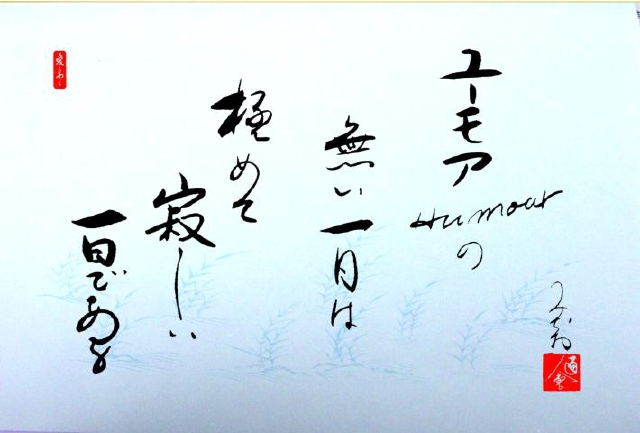 ユーモア
Humourの
無い一日は
極めて
寂しい
一日である